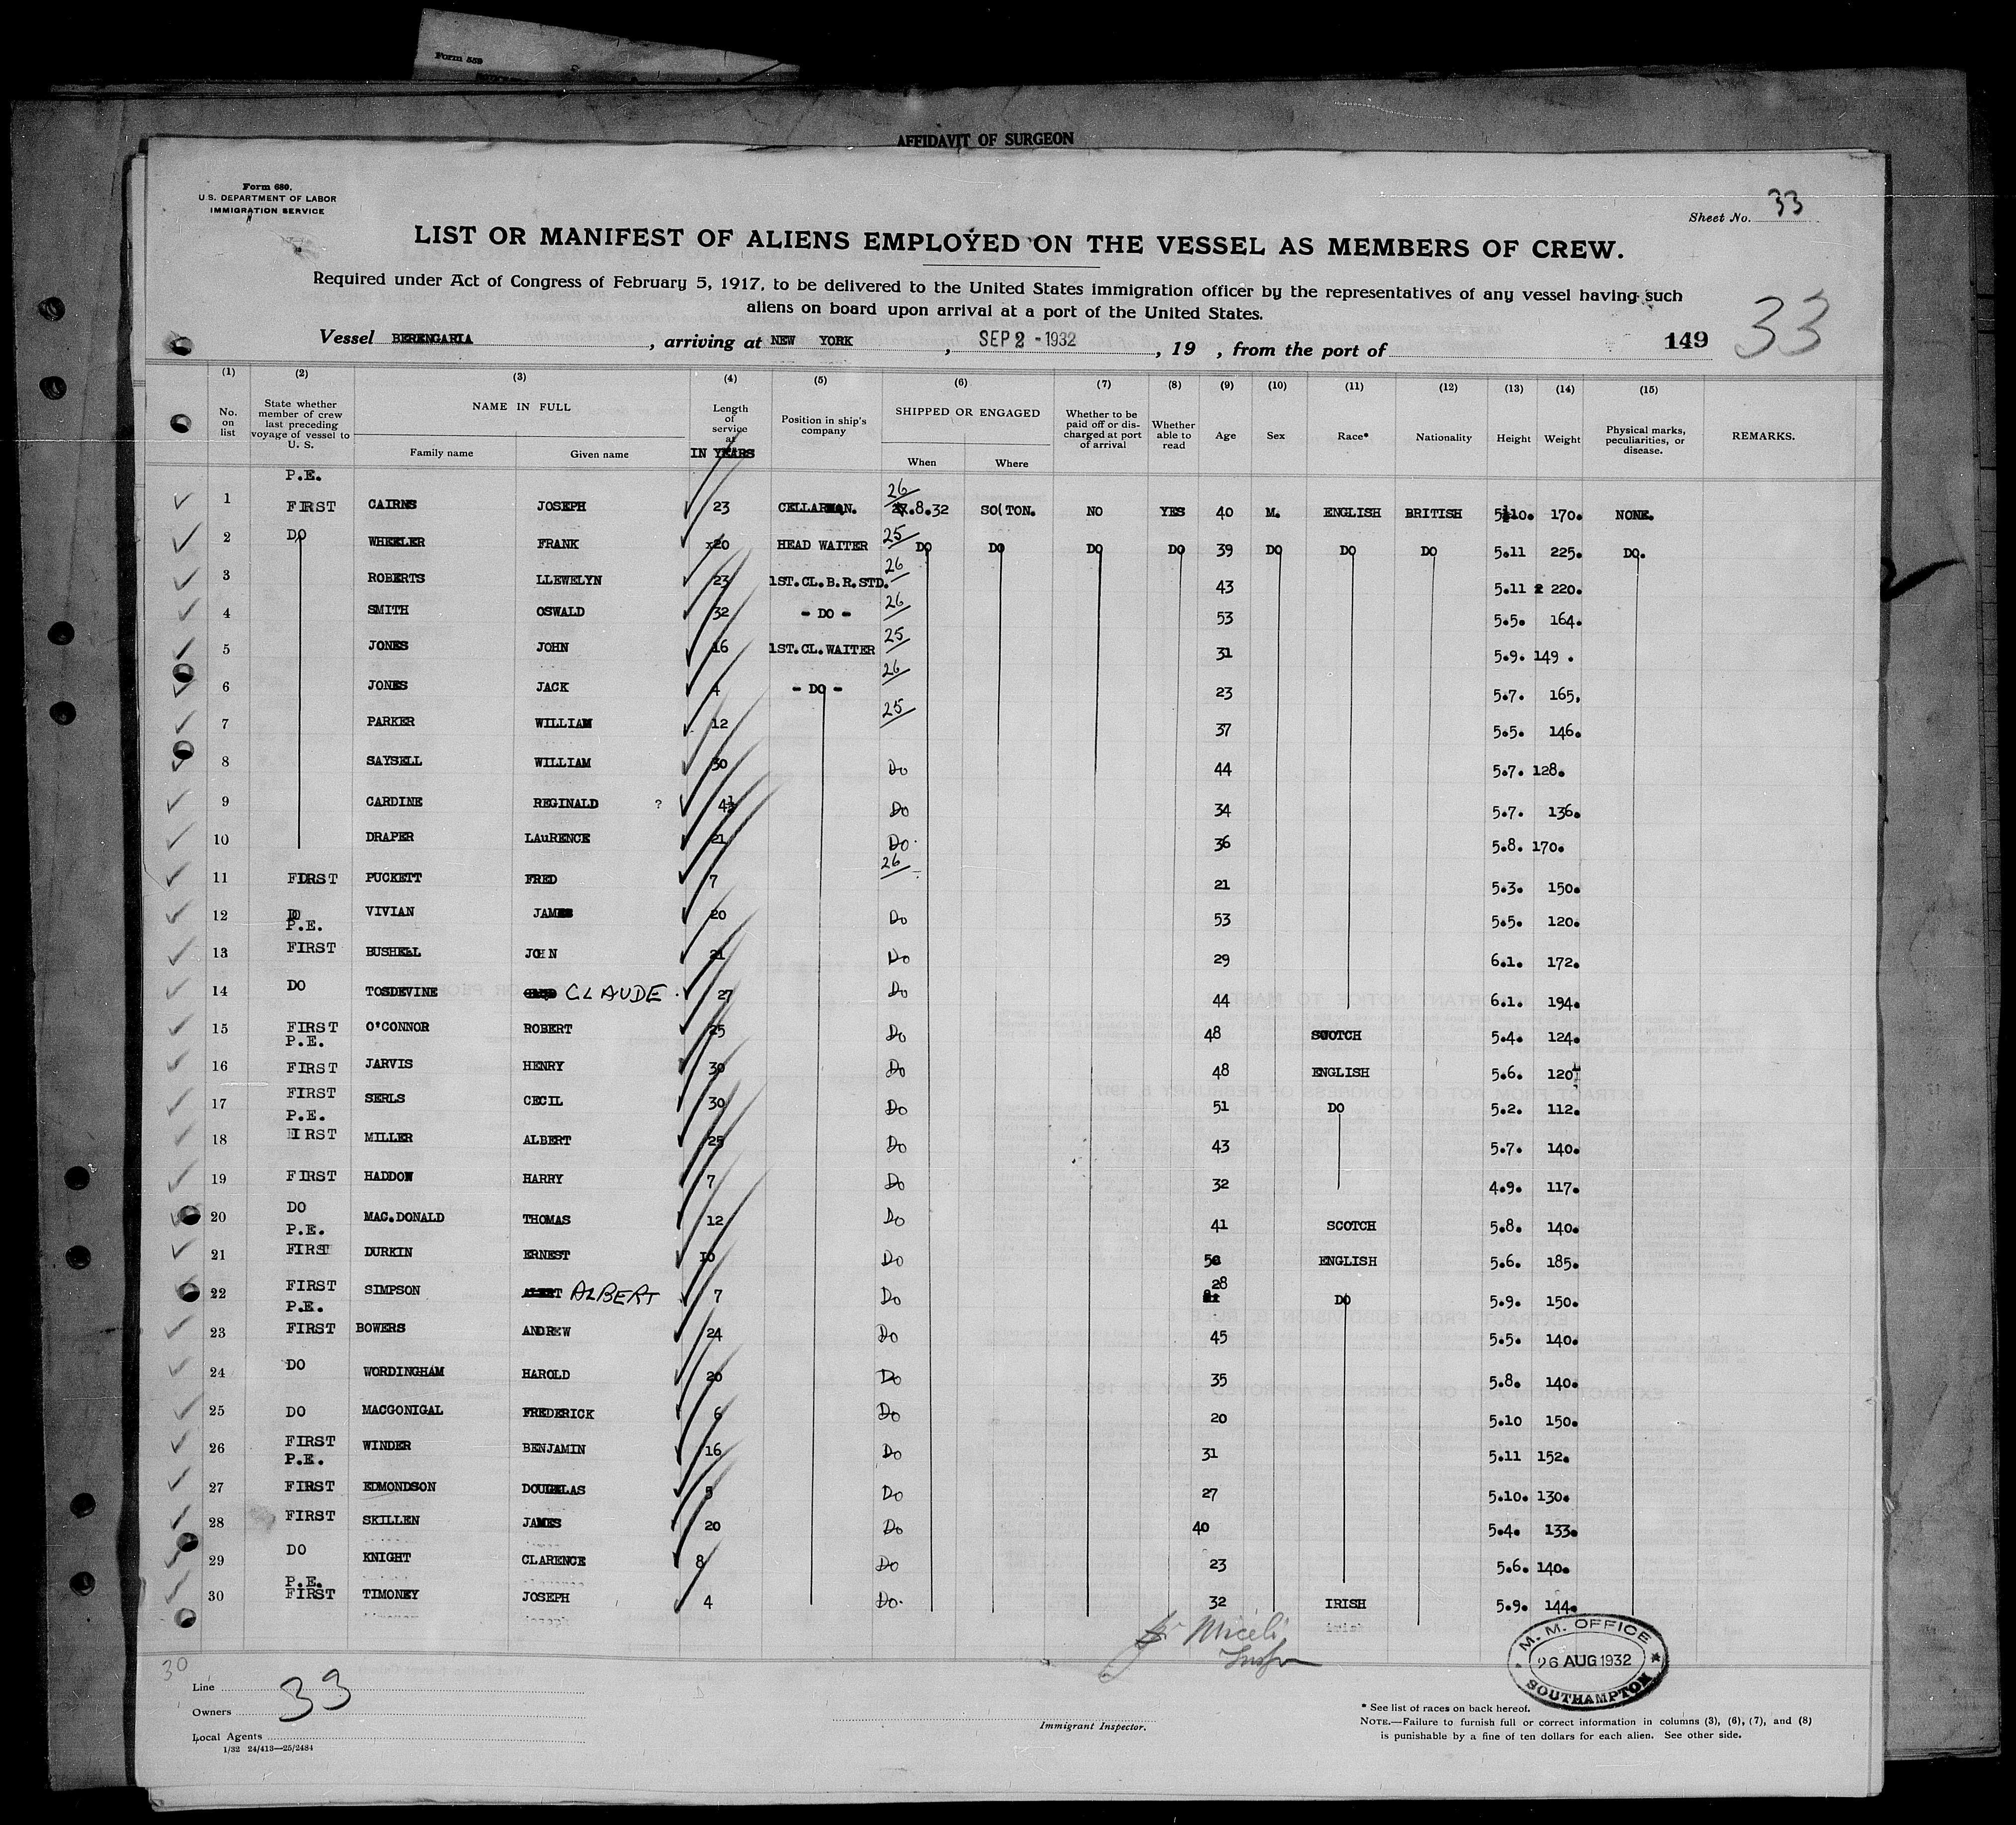 Form 559
AFFIDAVIT OF SURGEON
Form 680.
U.S. DEPARTMENT OF LABOR
IMMIGRATION SERVICE
Sheet No. 33
LIST OR MANIFEST OF ALIENS EMPLOYED ON THE VESSEL AS MEMBERS OF CREW.
Required under Act of Congress of February 5, 1917, to be delivered to the United States immigration officer by the representatives of any vessel having such
aliens on board upon arrival at a port of the United States.
33
Vessel BERENGARIA, arriving at NEW YORK, SEP 2 - 1932, 19 , from the port of 149
(1) (2) (3) (4) (5) (6) (7) (8) (9) (10) (11) (12) (13) (14) (15)
No. on list
State whether member of crew last preceding voyage of vessel to U. S.
NAME IN FULL
Family name Given name
Length of service at
IN YEARS
Position in ship's company
SHIPPED OR ENGAGED
When Where
Whether to be paid off or discharged at port of arrival
Whether able to read
Age Sex Race* Nationality Height Weight
Physical marks, peculiarities, or disease.
REMARKS.
P.E.
1 FIRST CAIRNS JOSEPH 23 CELLARMAN. 26 .8.32 SO(TON. NO YES 40 M. ENGLISH BRITISH 5 10. 170. NONE.
2 DO WHEELER FRANK x20 HEAD WAITER 25 DO DO DO DO 39 DO DO DO 5.11 225. DO.
3 ROBERTS LLEWELYN 23 1ST.CL.B.R.STD. 26 43 5.11 220.
4 SMITH OSWALD 32 - DO - 26 53 5.5. 164.
5 JONES JOHN 16 1ST.CL.WAITER 25 31 5.9. 149 .
6 JONES JACK 4 - DO - 26 23 5.7. 165.
7 PARKER WILLIAM 12 25 37 5.5. 146.
8 SAYSELL WILLIAM 30 Do 44 5.7. 128.
9 CARDINE REGINALD ? 4½ Do 34 5.7. 136.
10 DRAPER LAuRENCE 21 Do. 36 5.8. 170.
11 FIRST PUCKETT FRED 7 26 21 5.3. 150.
12 DO VIVIAN JAMES 20 Do 53 5.5. 120.
P.E.
13 FIRST BUSHELL JOHN 21 Do 29 6.1. 172.
14 DO TOSDEVINE CLAUDE. 27 Do 44 6.1. 194.
15 FIRST O'CONNOR ROBERT 25 Do 48 SCOTCH 5.4. 124.
P.E.
16 FIRST JARVIS HENRY 30 Do 48 ENGLISH 5.6. 120
17 FIRST SERLS CECIL 30 Do 51 DO 5.2. 112.
P.E.
18 FIRST MILLER ALBERT 25 Do 43 5.7. 140.
19 FIRST HADDOW HARRY 7 Do 32 4.9. 117.
20 DO MAC.DONALD THOMAS 12 Do 41 SCOTCH 5.8. 140.
P.E.
21 FIRST DURKIN ERNEST 10 Do 50 ENGLISH 5.6. 185.
22 FIRST SIMPSON ALBERT 7 Do 28 DO 5.9. 150.
P.E.
23 FIRST BOWERS ANDREW 24 Do 45 5.5. 140.
24 DO WORDINGHAM HAROLD 20 Do 35 5.8. 140.
25 DO MACGONIGAL FREDERICK 6 Do 20 5.10 150.
26 FIRST WINDER BENJAMIN 16 Do 31 5.11 152.
P.E.
27 FIRST EDMONDSON DOUGLAS 5 Do 27 5.10. 130.
28 FIRST SKILLEN JAMES 20 Do 40 5.4. 133.
29 DO KNIGHT CLARENCE 8 Do 23 5.6. 140.
P.E.
30 FIRST TIMONEY JOSEPH 4 Do. 32 IRISH 5.9. 144.
Miceli
M. M. OFFICE
26 AUG 1932
SOUTHAMPTON
30
Line
Owners
33
Local Agents
1/32 24/413—25/2484
Immigrant Inspector.
* See list of races on back hereof.
NOTE.—Failure to furnish full or correct information in columns (3), (6), (7), and (8)
is punishable by a fine of ten dollars for each alien. See other side.